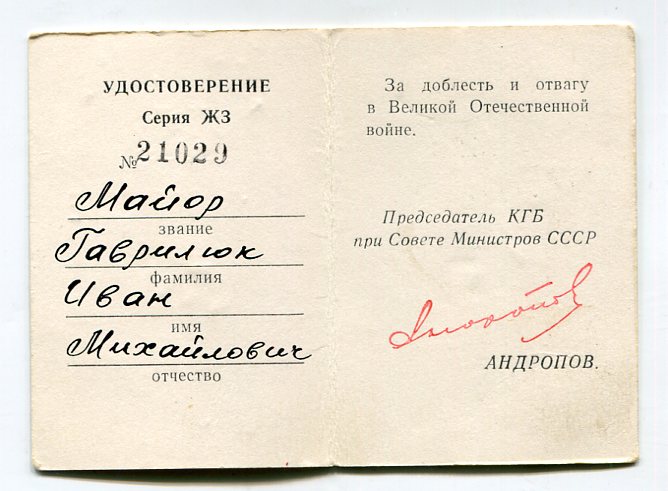 УДОСТОВЕРЕНИЕ
Серия ЖЗ
№21029
Майор
звание
Гаврилюк
фамилия
Иван
имя
Михайлович
отчество
За доблесть и отвагу
в Великой Отечественной
войне.
Председатель КГБ
при Совете Министров СССР
Андропов
АНДРОПОВ.